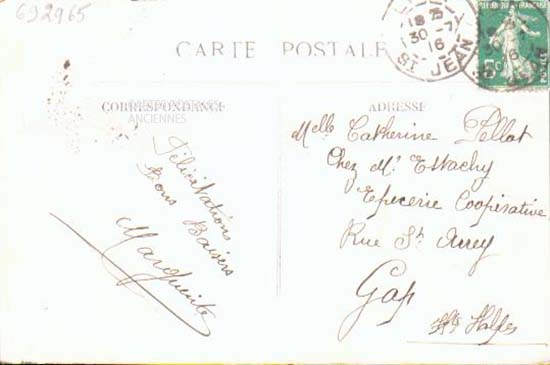 692965
CARTE POSTALE
18 30-7 16
ST JEAN
5c
POSTES
CORRESPONDANCE
ANCIENNES
ADRESSE
Félicitations
Bons Baisers
Marguerite
Melle Catherine Pellat
Chez Mr Estachy
Epicerie Coopérative
Rue St Arey
Gap
Htes Halpes